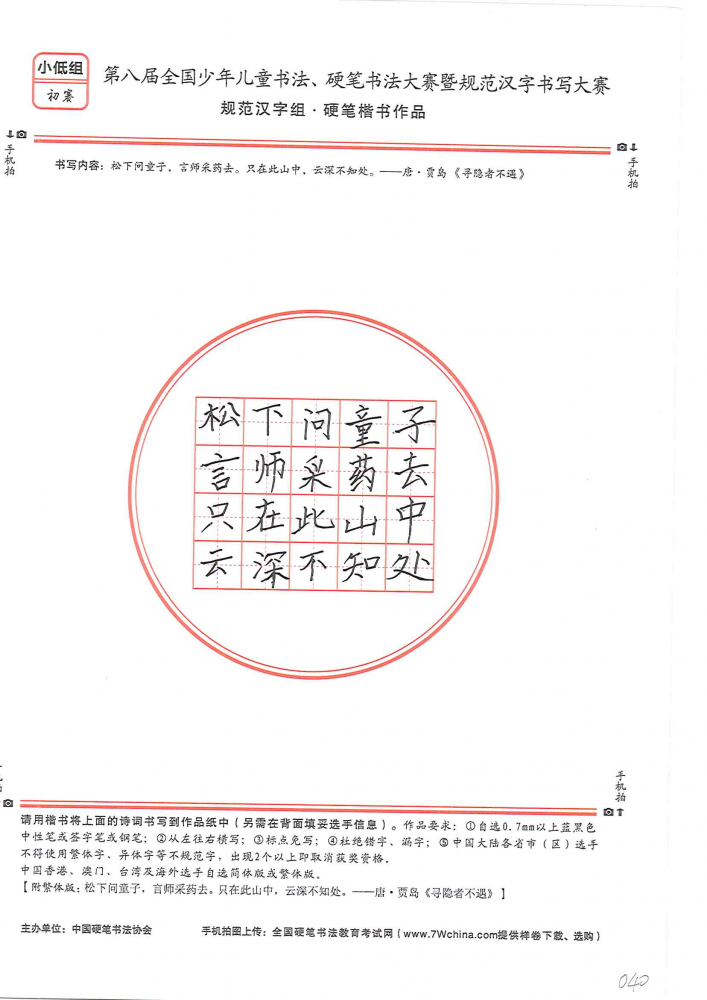 小低组
初赛
第八届全国少年儿童书法、硬笔书法大赛暨规范汉字书写大赛
规范汉字组·硬笔楷书作品
手机拍
手机拍
书写内容：松下问童子，言师采药去。只在此山中，云深不知处。——唐·贾岛《寻隐者不遇》
松下问童子
言师采药去
只在此山中
云深不知处
手机拍
请用楷书将上面的诗词书写到作品纸中（另需在背面填妥选手信息）。作品要求：①自选0.7mm以上蓝黑色
中性笔或签字笔或钢笔；②从左往右横写；③标点免写；④杜绝错字、漏字；⑤中国大陆各省市（区）选手
不得使用繁体字、异体字等不规范字，出现2个以上即取消获奖资格。
中国香港、澳门、台湾及海外选手自选简体版或繁体版。
【附繁体版：松下问童子，言师采药去。只在此山中，云深不知处。——唐·贾岛《寻隐者不遇》】
主办单位：中国硬笔书法协会
手机拍图上传：全国硬笔书法教育考试网（www.7Wchina.com提供样卷下载、选购）
040